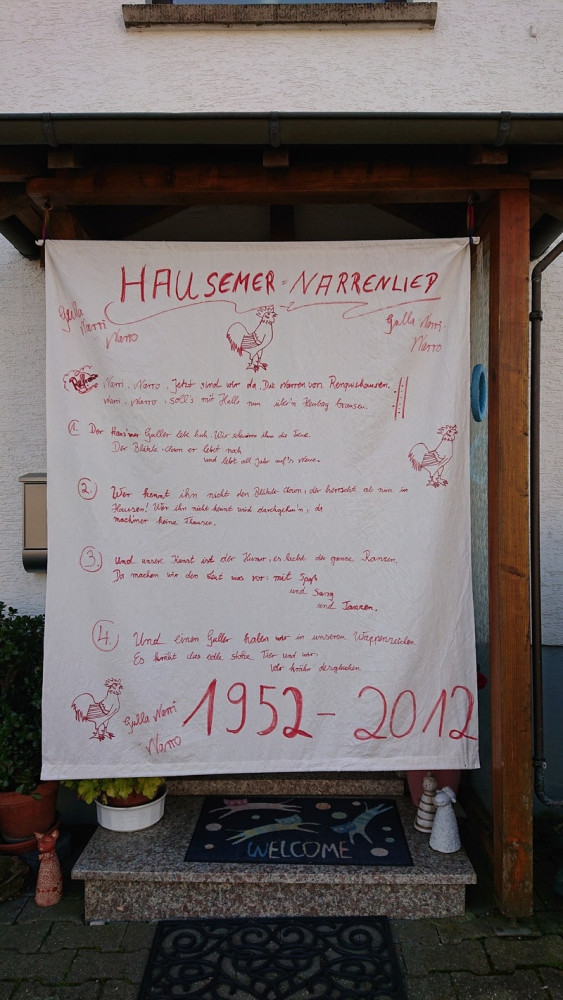 HAUSEMER-NARRENLIED
Gulla Narri Narro
Gulla Narri-
Narro
Refrain Narri, Narro, jetzt sind wir da, Die Narren von
Narri, Narro, soll's mit Halle nun über'n Heuberg brausen.
1. Der Guller lebe hoch. Wir ihm die
Der Blätzle-Clown er lebet noch
und lebt all Jahr auf's Neue.
2. Wer kennt ihn nicht den Blätzle-Clown, der herrscht ab nun in
Hausen! Wer ihn nicht kennt wird durchgehau'n, da
mach mer keine Flausen.
3. Und unsere Kunst ist der Humor, es lacht der ganze Ranzen,
Da machen wir den Leut was vor: mit Spaß
und Sang
und Tanzen.
4. Und einen Guller haben wir in unserem Wappenzeichen
Es kräht das edle stolze Tier und wir:
Wir krähn desgleichen
Gulla Narri
Narro
1952-2012
WELCOME